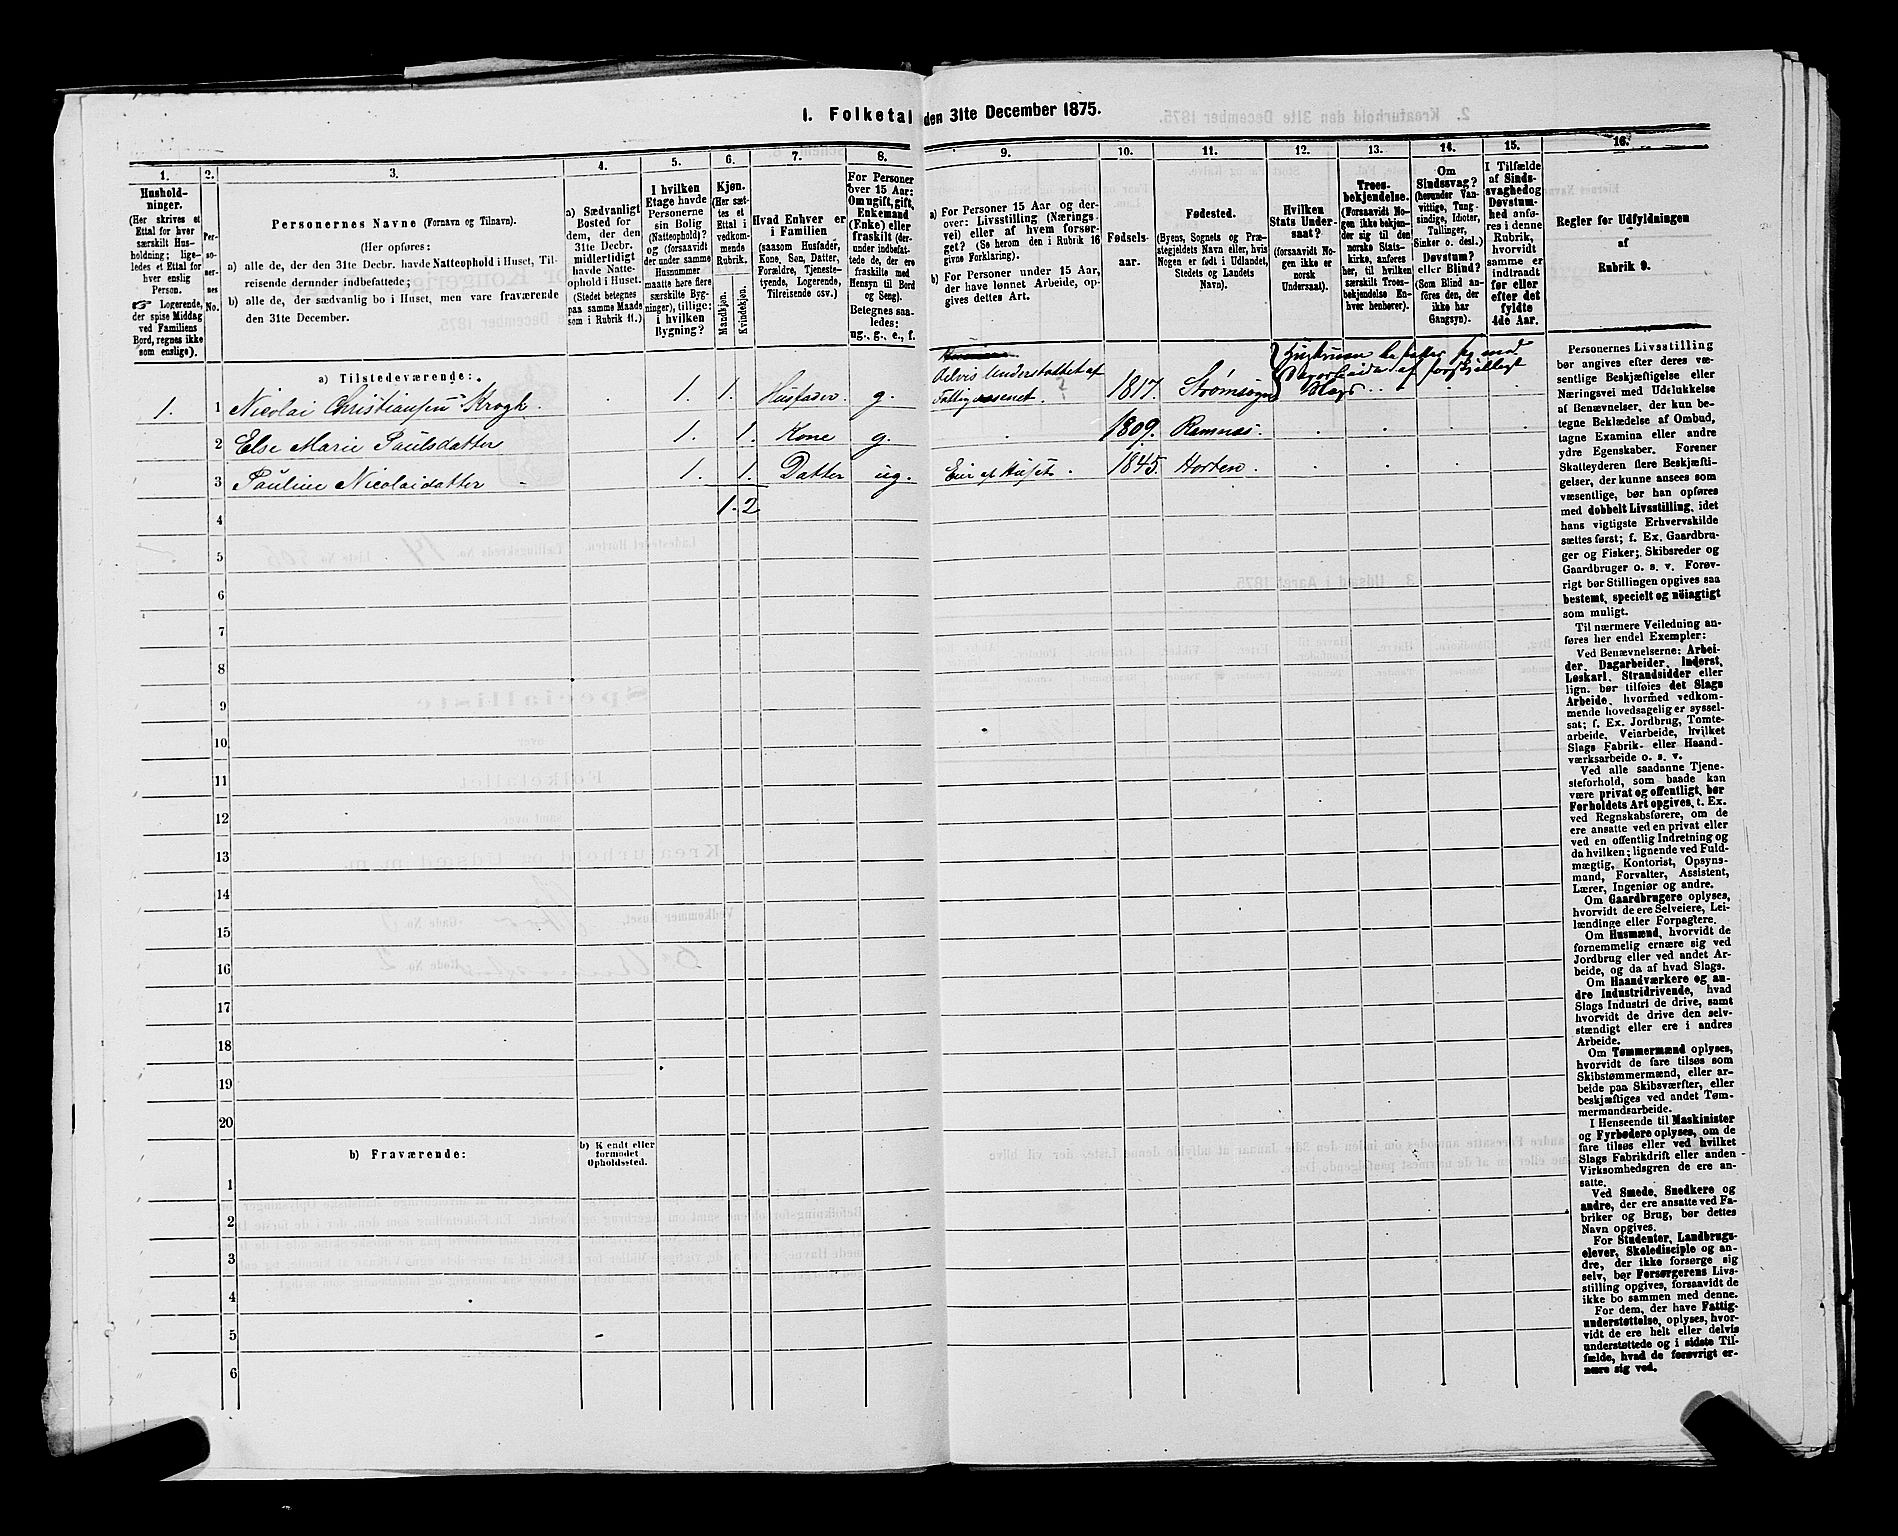 1. Folketal den 31te December 1875.
1.
2.
3.
4.
5.
6.
7.
8.
9.
10.
11.
12.
13.
14.
15.
16.
Hushold-
ninger.
(Her skrives et
Ettal for hver
særskilt Hus-
holdning; lige-
ledes et Ettal for
hver enslig
Person.
☞ Logerende,
der spise Middag
ved Familiens
Bord, regnes ikke
som enslige).
Per-
so-
ner-
nes
No.
Personernes Navne (Fornavn og Tilnavn).
(Her opføres:
a) alle de, der den 31te Decbr. havde Natteophold i Huset, Til-
reisende derunder indbefattede;
b) alle de, der sædvanlig bo i Huset, men vare fraværende
den 31te December.
a) Sædvanligt
Bosted for
dem, der den
31te Decbr.
midlertidigt
havde Natte-
ophold i Huset.
(Stedet betegnes
paa samme Maade
som i Rubrik 11.)
I hvilken
Etage havde
Personerne
sin Bolig
(Natteophold)?
og (forsaavidt
der under samme
Husnummer
maatte høre flere
særskilte Byg-
ninger), tillige:
i hvilken
Bygning?
Kjøn.
(Her sæt-
tes et
Ettal i
vedkom-
mende
Rubrik.
Mandkjøn.
Kvindekjøn.
Hvad Enhver er
i Familien
(saasom Husfader,
Kone, Søn, Datter,
Forældre, Tjeneste-
tyende, Logerende,
Tilreisende osv.)
For Personer
over 15 Aar:
Om ugift, gift,
Enkemand
(Enke) eller
fraskilt (der-
under indbefat-
tede de, der ere
fraskilte med
Hensyn til Bord
og Seng).
Betegnes saa-
ledes:
ug., g., e., f.
a) For Personer 15 Aar og der-
over: Livsstilling (Nærings-
vei) eller af hvem forsør-
get? (Se herom den i Rubrik 16
givne Forklaring).
b) For Personer under 15 Aar,
der have lønnet Arbeide, op-
gives dettes Art.
Fødsels-
aar.
Fødested.
(Byens, Sognets og Præ-
stegjeldets Navn eller, hvis
Nogen er født i Udlandet,
Stedets og Landets
Navn).
Hvilken
Stats Under-
saat?
(forsaavidt No-
gen ikke er
norsk
Undersaat).
Troes-
bekjendelse.
(Forsaavidt No-
gen ikke bekjen-
der sig til den
norske Stats-
kirke, anføres
her, til hvilken
særskilt Troes-
bekjendelse En-
hver henhører).
Om
Sindssvag?
(herunder Van-
vittige, Tung-
sindige, Idioter,
Tullinger,
Sinker o. desl.)
Døvstum?
eller Blind?
(Som Blind an-
føres den, der
ikke har
Gangsyn).
I Tilfælde
af Sinds-
svaghed og
Døvstum-
hed anfø-
res i denne
Rubrik,
hvorvidt
samme er
indtraadt
før eller
efter det
fyldte
4de Aar.
Regler for Udfyldningen
af
Rubrik 9.
a) Tilstedeværende:
1. 1 Nicolai Christiansen Krogh. 1. 1. Husfader. g. Delvis Understøttet af Fattigvæsenet. ? 1817. Strømsogn
2 Else Marie Paulsdatter 1. 1. Kone g. 1809. Ramnæs.
3 Pauline Nicolaidatter 1. 1. Datter ug. Eier af Huset. 1845. Horten.
1. 2
4
5
6
7
8
9
10
11
12
13
14
15
16
17
18
19
20
b) Fraværende:
b) Kjendt eller
formodet
Opholdssted.
1
2
3
4
5
6
Personernes Livsstilling
bør angives efter deres væ-
sentlige Beskjæftigelse eller
Næringsvei med Udelukkelse
af Benævnelser, der kun be-
tegne Beklædelse af Ombud,
tagne Examina eller andre
ydre Egenskaber. Forener
Skatteyderen flere Beskjæfti-
gelser, der kunne ansees som
væsentlige, bør han opføres
med dobbelt Livsstilling, idet
hans vigtigste Erhvervskilde
sættes først; f. Ex. Gaardbru-
ger og Fisker; Skibsreder og
Gaardbruger o. s. v. Forøv-
rigt bør Stillingen opgives saa
bestemt, specielt og nöiagtigt
som muligt.
Til nærmere Veiledning an-
føres her endel Exempler:
Ved Benævnelserne: Arbei-
der, Dagarbeider, Inderst,
Løskarl, Strandsidder eller
lign. bør tilføies det Slags
Arbeide, hvormed vedkom-
mende hovedsagelig er syssel-
sat; f. Ex. Jordbrug, Tomte-
arbeide, Veiarbeide, hvilket
Slags Fabrik- eller Haand-
værksarbeide o. s. v.
Ved alle saadanne Tjene-
steforhold, som baade kan
være privat og offentligt, bør
Forholdets Art opgives, t. Ex.
ved Regnskabsførere, om de
ere ansatte ved en privat eller
ved en offentlig Indretning og
da hvilken; lignende ved Fuld-
mægtig, Kontorist, Opsyns-
mand, Forvalter, Assistent,
Lærer, Ingeniør og andre.
Om Gaardbrugere oplyses,
hvorvidt de ere Selveiere, Lei-
lændinge eller Forpagtere.
Om Husmænd, hvorvidt de
fornemmelig ernære sig ved
Jordbrug eller ved andet Ar-
beide, og da af hvad Slags.
Om Haandværkere og an-
dre Industridrivende, hvad
Slags Industri de drive, samt
hvorvidt de drive den selv-
stændigt eller ere i andres
Arbeide.
Om Tømmermænd oplyses,
hvorvidt de fare tilsøs som
Skibstømmermænd, eller ar-
beide paa Skibsværfter, eller
beskjæftiges ved andet Tøm-
mermandsarbeide.
I Henseende til Maskinister
og Fyrbødere oplyses, om de
fare tilsøs eller ved hvilket
Slags Fabrikdrift eller anden
Virksomhedsgren de ere an-
satte.
Ved Smede, Snedkere og
andre, der ere ansatte ved Fa-
briker og Brug, bør dettes
Navn opgives.
For Studenter, Landbrugs-
elever, Skoledisciple og an-
dre, der ikke forsørge sig
selv, bør Forsørgerens Livs-
stilling opgives, forsaavidt de
ikke bo sammen med denne.
For dem, der have Fattig-
understøttelse, oplyses, hvor-
vidt de ere helt eller delvis
understøttede og i sidste Til-
fælde, hvad de forøvrigt er-
nære sig ved.